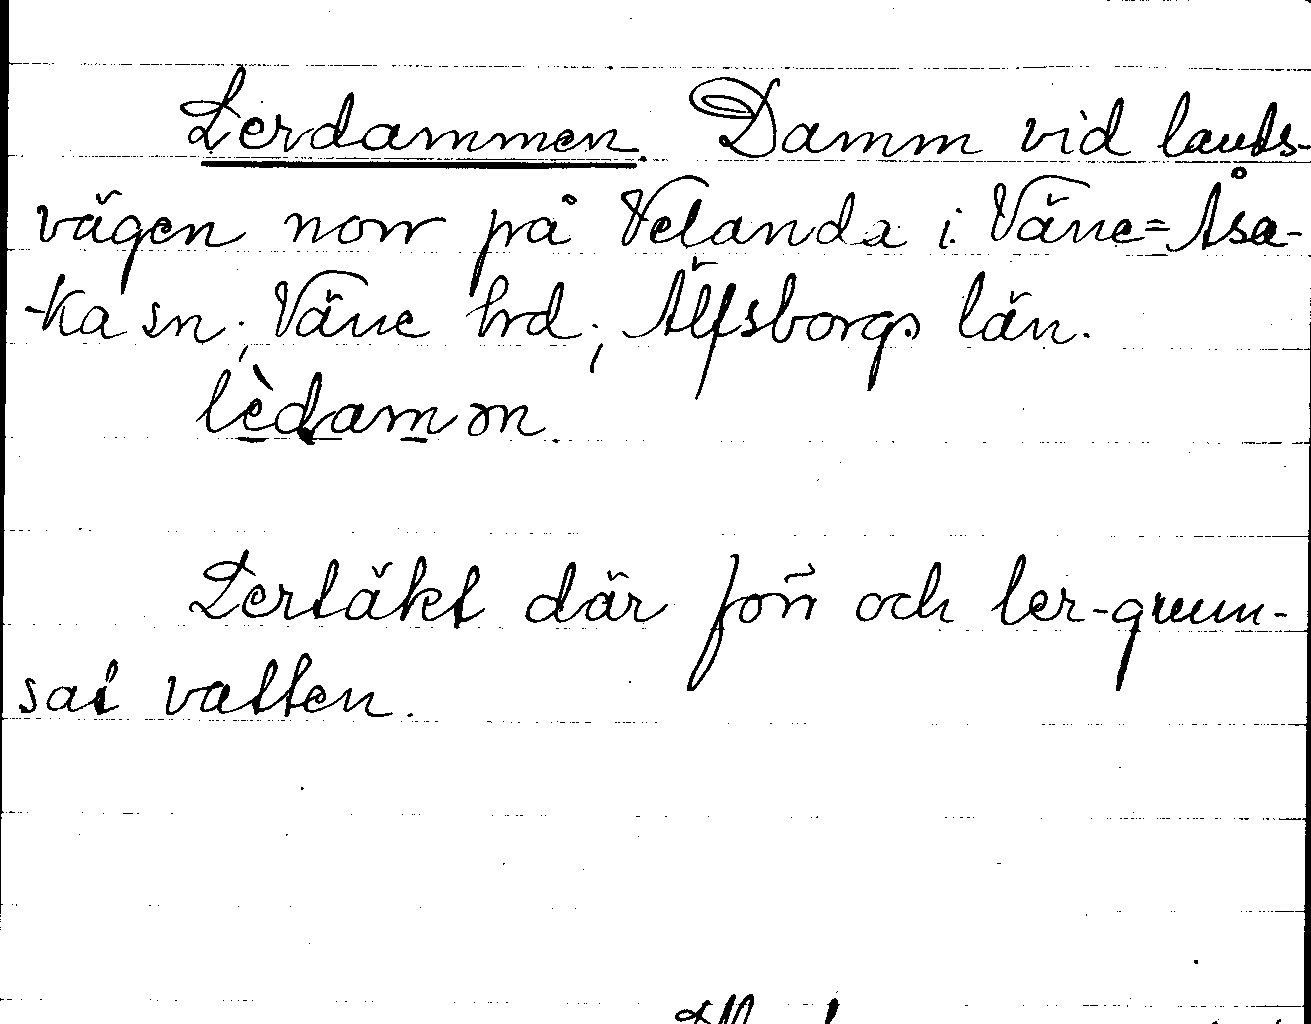 Lerdammen. Damm vid lands-
vägen norr på Velanda i Väne=Åsa-
ka sn, Väne hrd, Älfsborgs län.
lèdamm

Lertäkt där förr och ler-grum-
sat vatten.